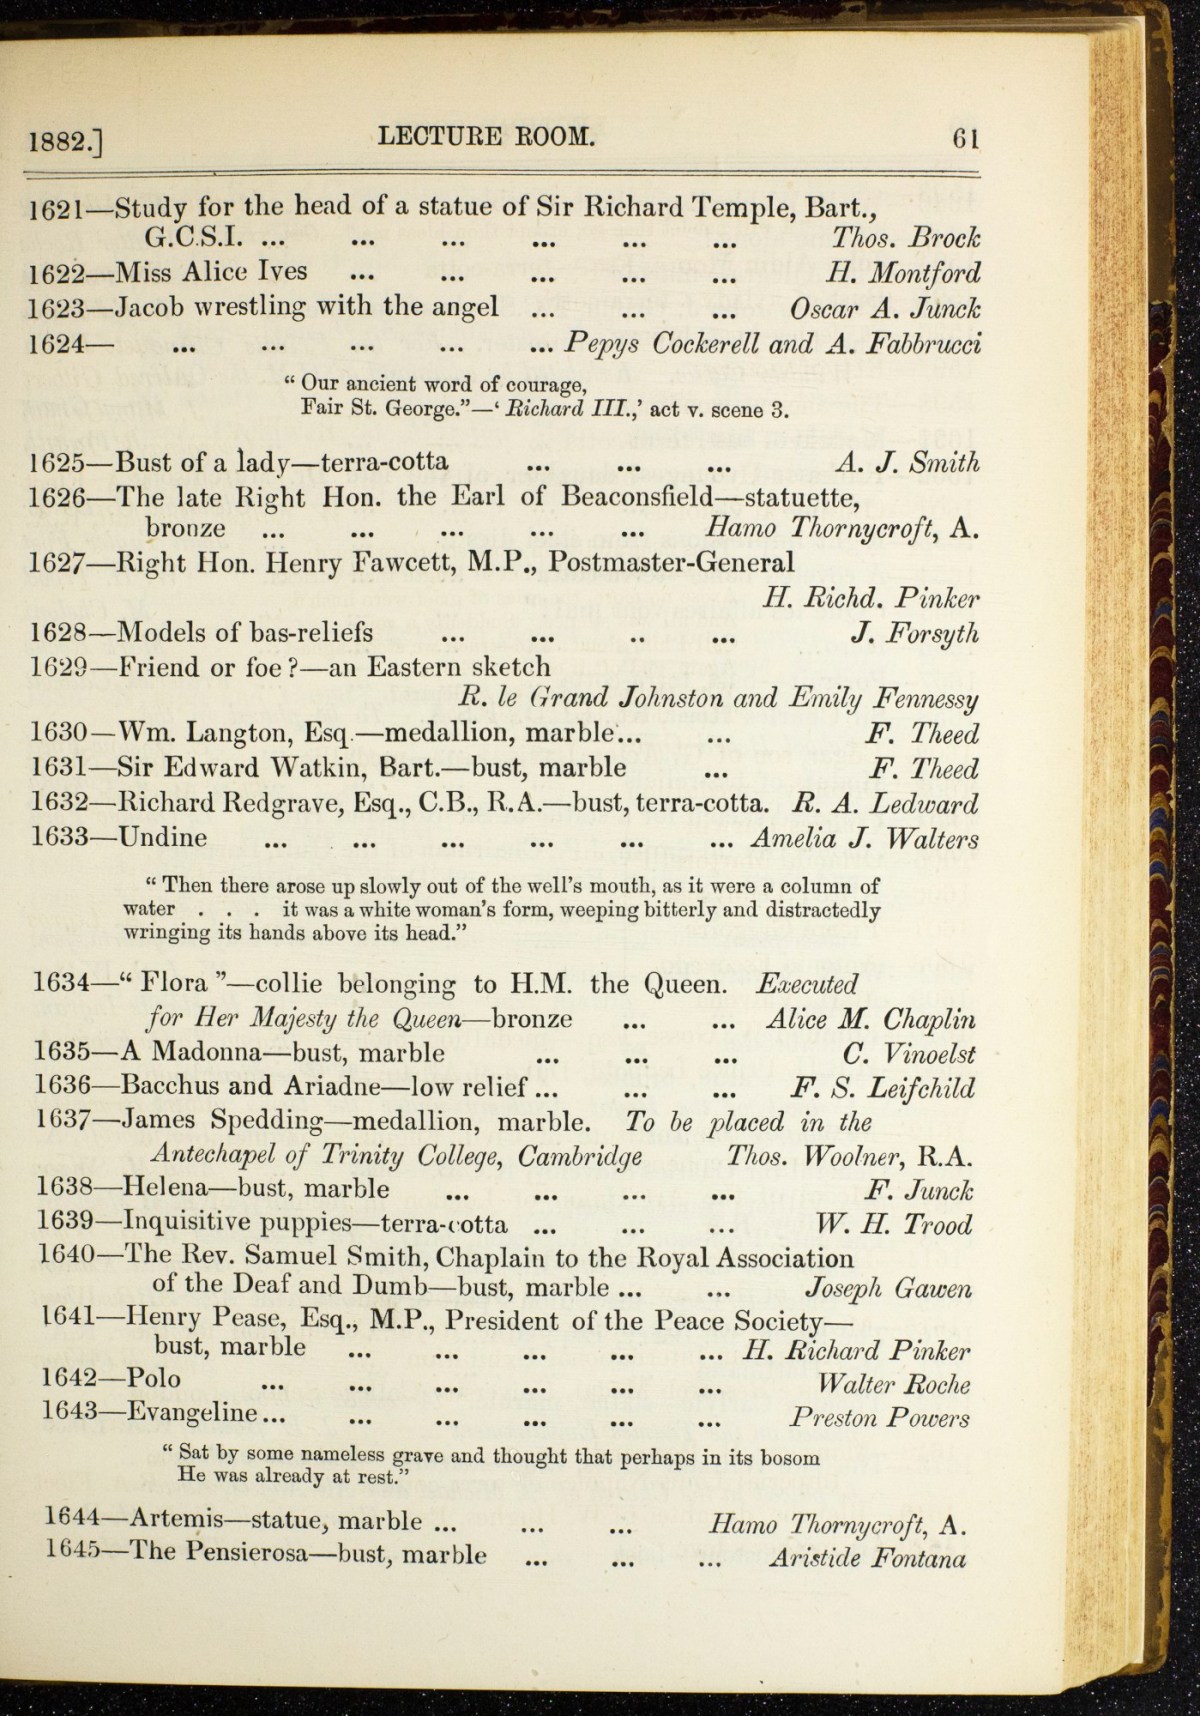 1882.] LECTURE ROOM. 61
1621—Study for the head of a statue of Sir Richard Temple, Bart.,
G.C.S.I. ... ... ... ... ... ... Thos. Brock
1622—Miss Alice Ives ... ... ... ... ... H. Montford
1623—Jacob wrestling with the angel ... ... ... Oscar A. Junck
1624— ... ... ... ... ... Pepys Cockerell and A. Fabbrucci
“ Our ancient word of courage,
Fair St. George.”—‘ Richard III.,’ act v. scene 3.
1625—Bust of a lady—terra-cotta ... ... ... A. J. Smith
1626—The late Right Hon. the Earl of Beaconsfield—statuette,
bronze ... ... ... ... ... Hamo Thornycroft, A.
1627—Right Hon. Henry Fawcett, M.P., Postmaster-General
H. Richd. Pinker
1628—Models of bas-reliefs ... ... .. ... J. Forsyth
1629—Friend or foe ?—an Eastern sketch
R. le Grand Johnston and Emily Fennessy
1630—Wm. Langton, Esq.—medallion, marble... ... F. Theed
1631—Sir Edward Watkin, Bart.—bust, marble ... F. Theed
1632—Richard Redgrave, Esq., C.B., R.A.—bust, terra-cotta. R. A. Ledward
1633—Undine ... ... ... ... ... ... Amelia J. Walters
“ Then there arose up slowly out of the well’s mouth, as it were a column of
water . . . it was a white woman’s form, weeping bitterly and distractedly
wringing its hands above its head.”
1634—“ Flora ”—collie belonging to H.M. the Queen. Executed
for Her Majesty the Queen—bronze ... ... Alice M. Chaplin
1635—A Madonna—bust, marble ... ... ... C. Vinoelst
1636—Bacchus and Ariadne—low relief ... ... ... F. S. Leifchild
1637—James Spedding—medallion, marble. To be placed in the
Antechapel of Trinity College, Cambridge Thos. Woolner, R.A.
1638—Helena—bust, marble ... ... ... ... F. Junck
1639—Inquisitive puppies—terra-cotta ... ... ... W. H. Trood
1640—The Rev. Samuel Smith, Chaplain to the Royal Association
of the Deaf and Dumb—bust, marble ... ... Joseph Gawen
1641—Henry Pease, Esq., M.P., President of the Peace Society—
bust, marble ... ... ... ... ... H. Richard Pinker
1642—Polo ... ... ... ... ... ... Walter Roche
1643—Evangeline... ... ... ... ... ... Preston Powers
“ Sat by some nameless grave and thought that perhaps in its bosom
He was already at rest.”
1644—Artemis—statue, marble ... ... ... Hamo Thornycroft, A.
1645—The Pensierosa—bust, marble ... ... ... Aristide Fontana